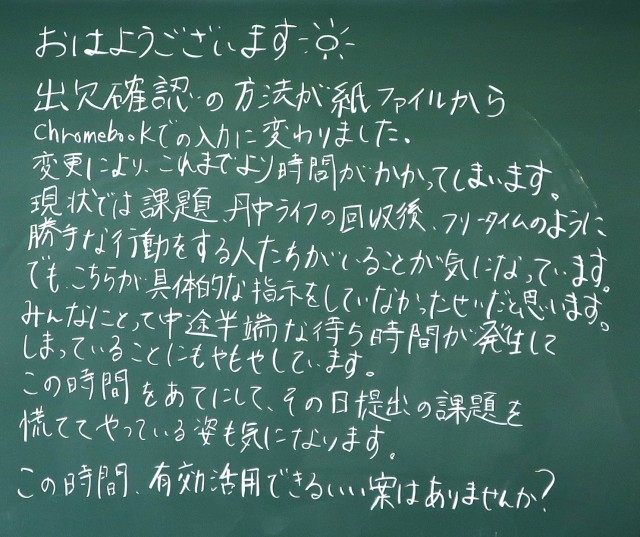 おはようございます
出欠確認の方法が紙ファイルから
Chromebookでの入力に変わりました。
変更により、これまでより時間がかかってしまいます。
現状では課題、丹中ライフの回収後、フリータイムのように
勝手な行動をする人たちがいることが気になっています。
でも、こちらが具体的な指示をしていなかったせいだと思います。
みんなにとって中途半端な待ち時間が発生して
しまっていることにもやもやしています。
この時間をあてにして、その日提出の課題を
慌ててやっている姿も気になります。
この時間、有効活用できるいい案はありませんか?